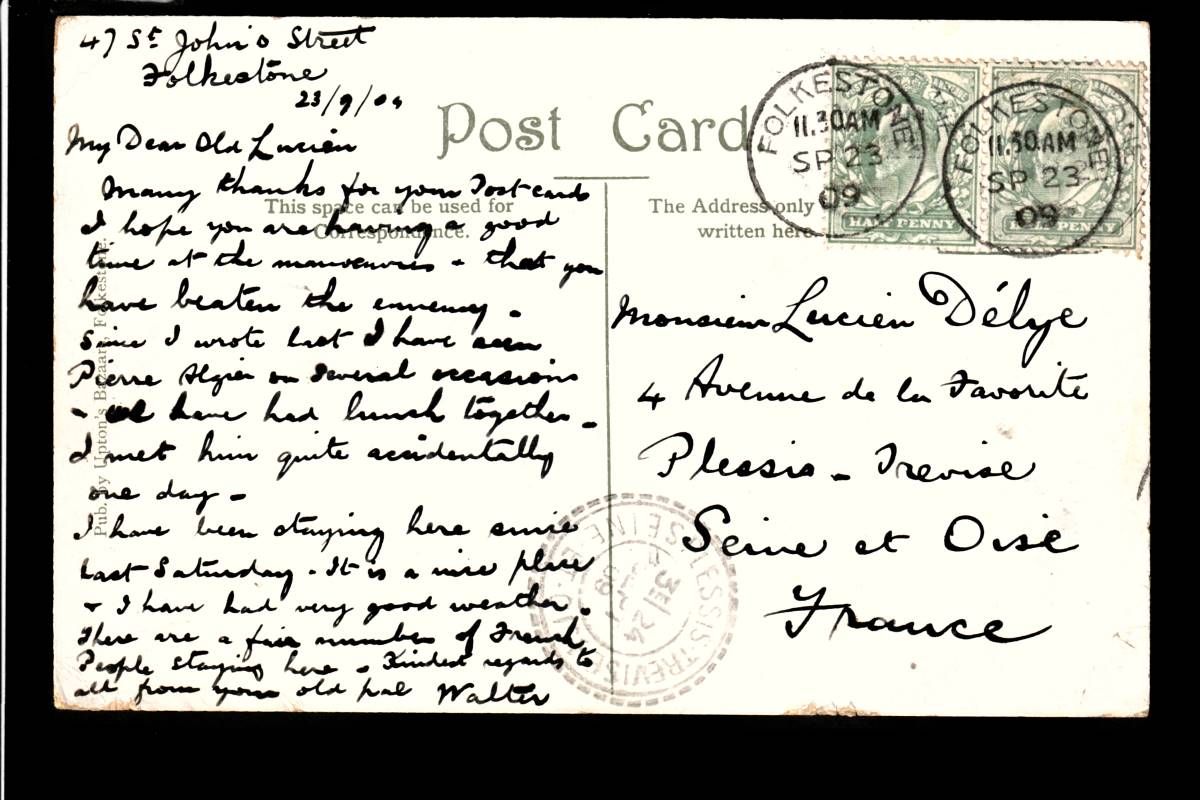 47 St. John's Street
Folkestone
23/9/09
Post Card
My Dear Old Lucien
Many thanks for your Post cards
I hope you are having a good
time at the manoeuvres & that you
have beaten the ennemy.
Since I wrote last I have seen
Pierre Algier on several occasions
& we have had lunch together.
I met him quite accidentally
one day.
I have been staying here since
last Saturday. It is a nice place
& I have had very good weather.
There are a fair number of French
People staying here. Kindest regards to
all from your old pal Walter
This space can be used for
Correspondence.
The Address only
written here.
Pub. by Upton's Bazaar, Folkestone.
Monsieur Lucien Délye
4 Avenue de la Favorite
Plessis - Trevise
Seine et Oise
France
FOLKESTONE
11.30AM
SP 23
09
FOLKESTONE
11.30AM
SP 23
09
HALF PENNY
HALF PENNY
PLESSIS-TREVISE
SEINE-ET-OISE
3E/24
09